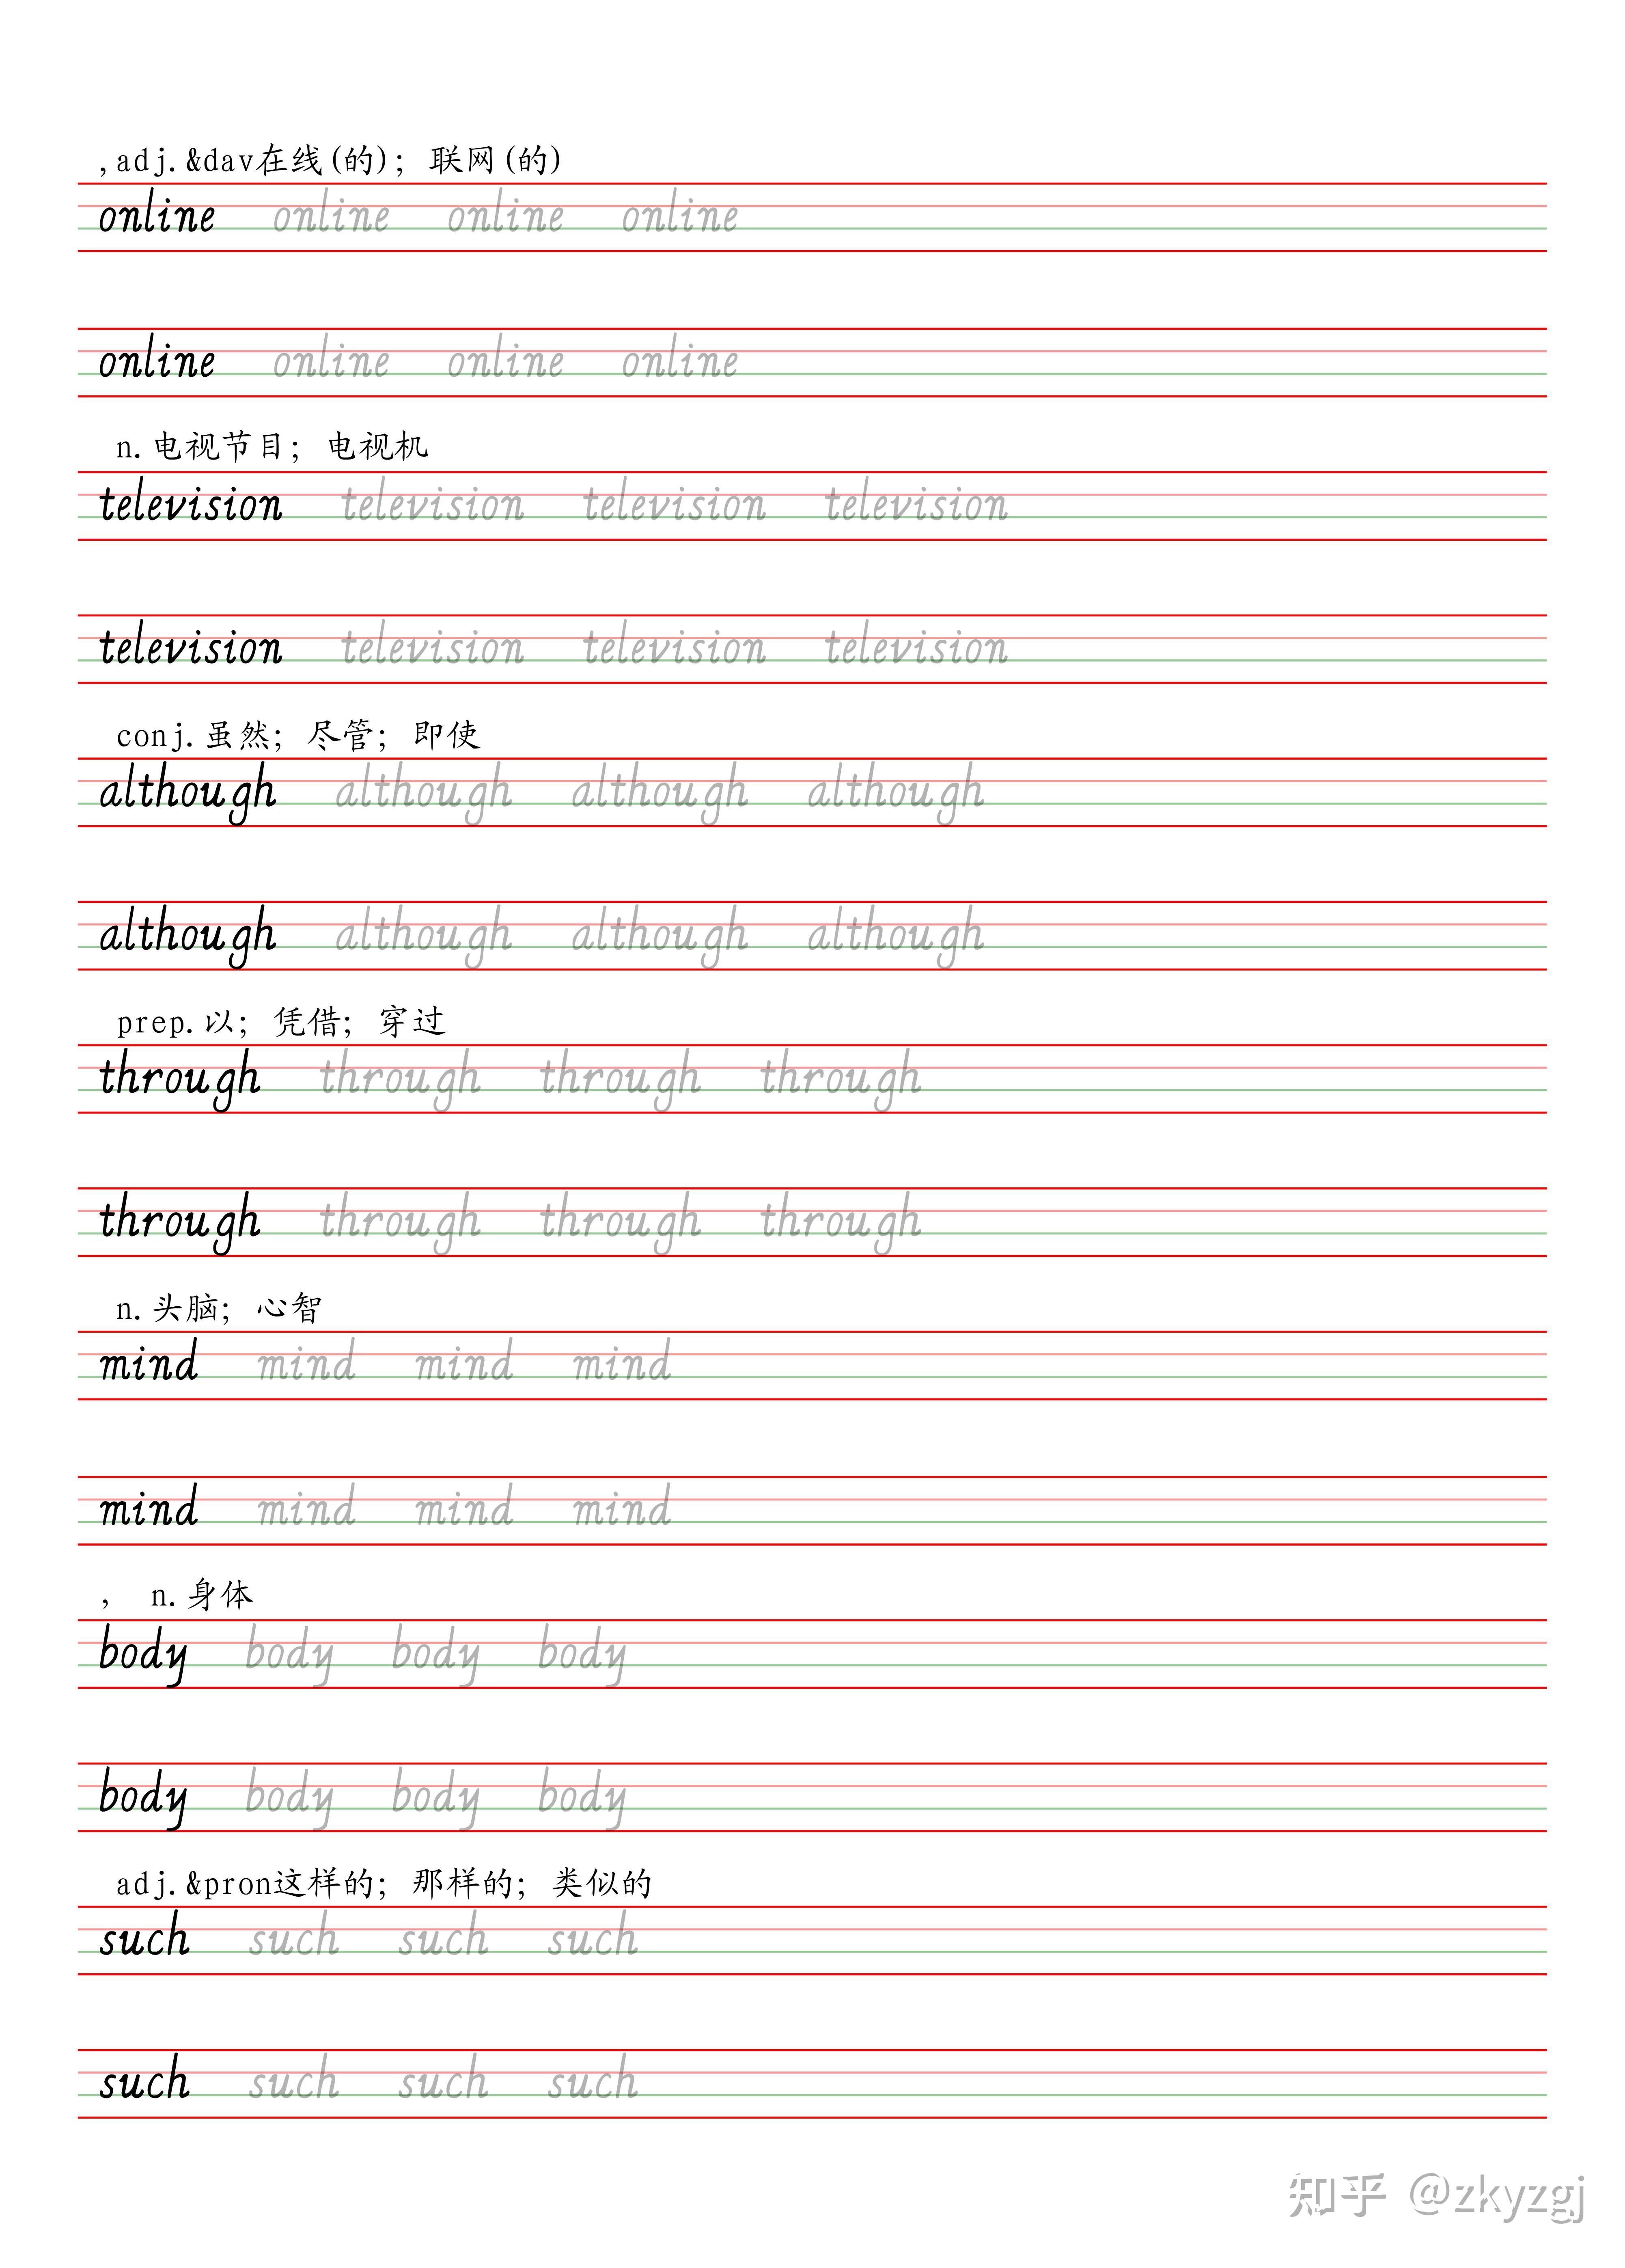 ,adj.&dav在线(的)；联网(的)
online online online online
online online online online
n.电视节目；电视机
television television television television
television television television television
conj.虽然；尽管；即使
although although although although
although although although although
prep.以；凭借；穿过
through through through through
through through through through
n.头脑；心智
mind mind mind mind
mind mind mind mind
， n.身体
body body body body
body body body body
adj.&pron这样的；那样的；类似的
such such such such
such such such such
知乎 @zkyzgj